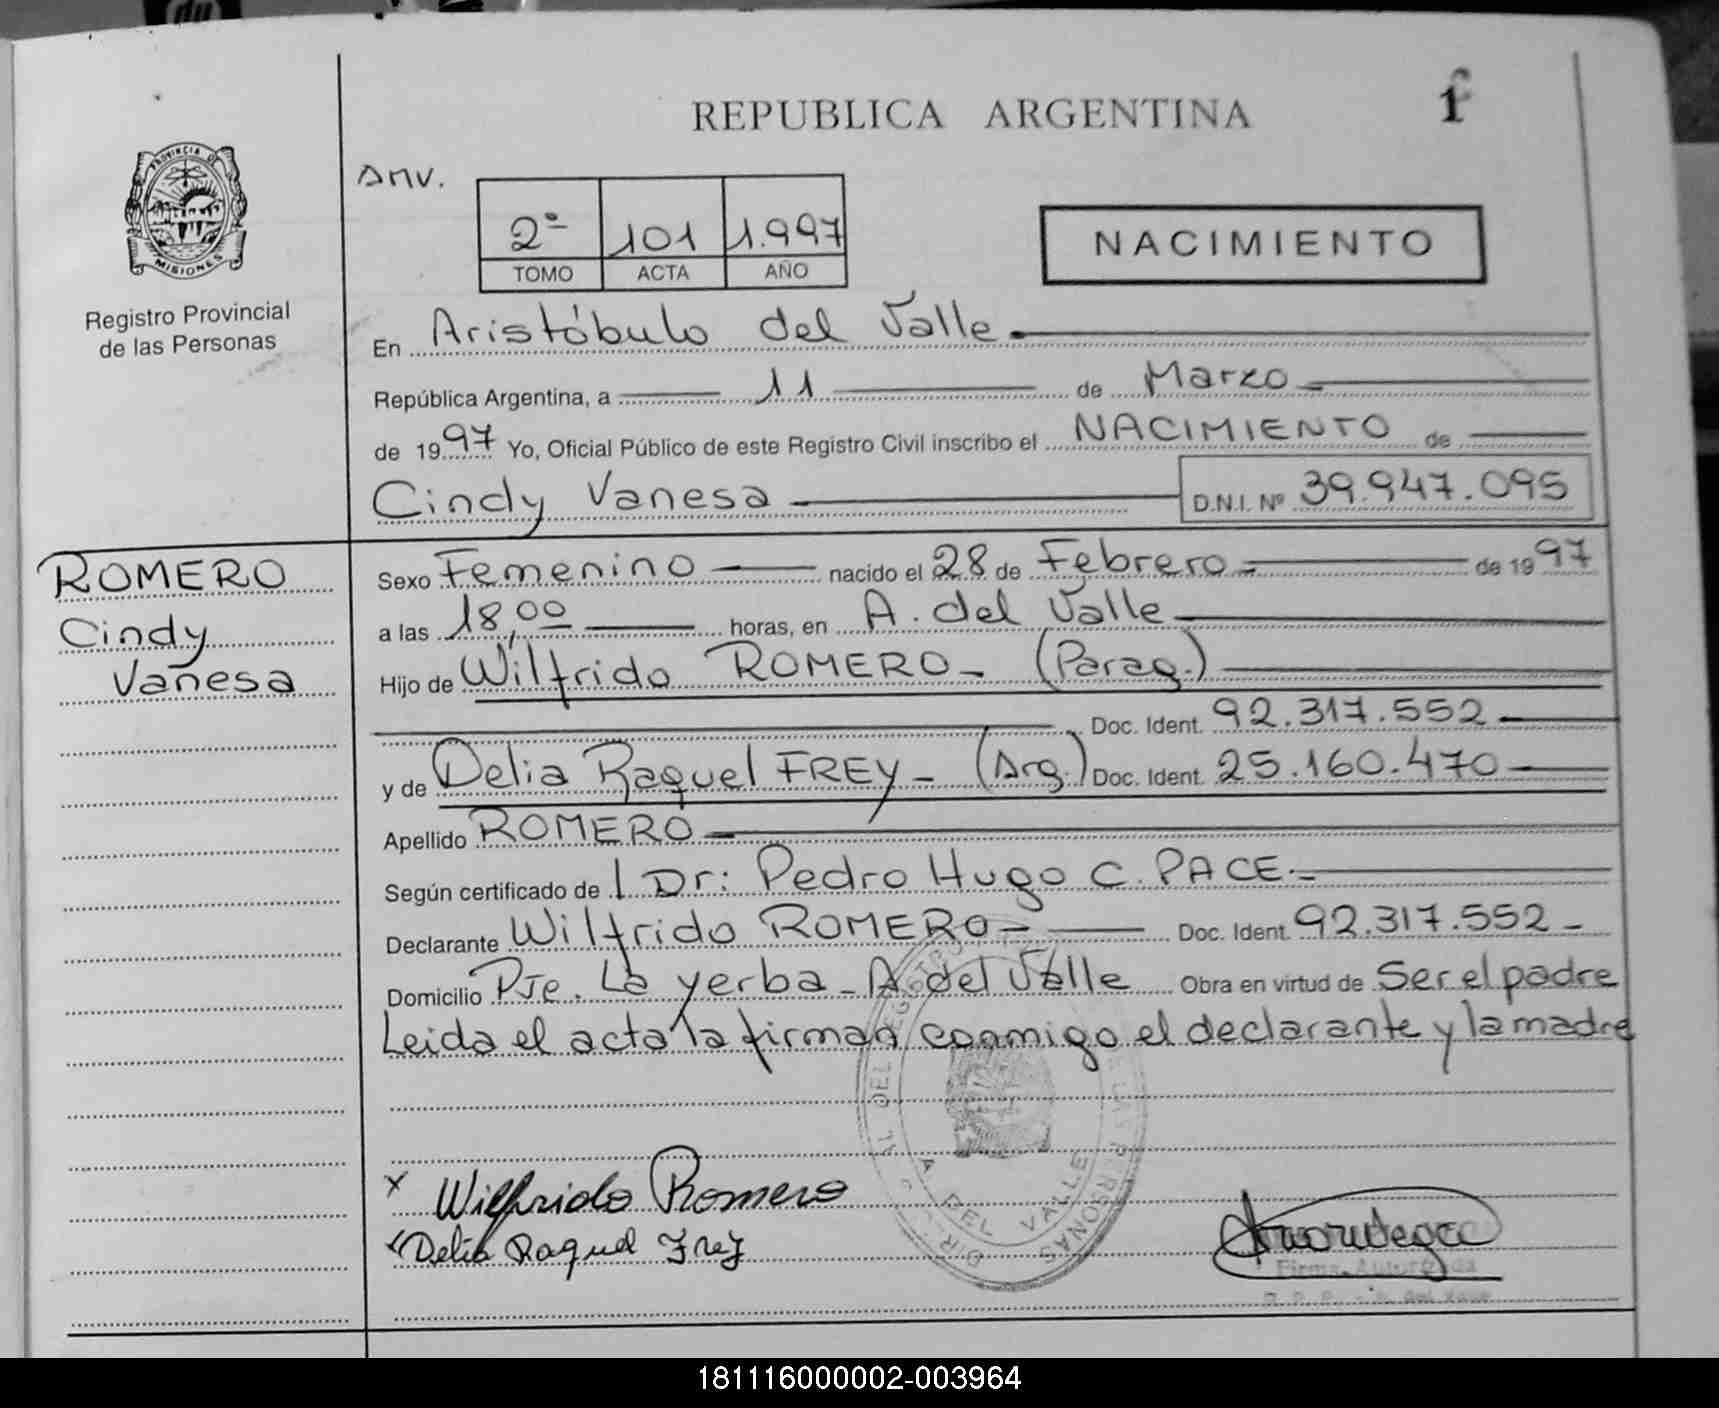 hp
REPUBLICA ARGENTINA
1
PROVINCIA DE
MISIONES
Registro Provincial
de las Personas
AMV.
2º 101 1.997
TOMO ACTA AÑO
NACIMIENTO
En Aristóbulo del Valle.
República Argentina, a 11 de Marzo
de 1997 Yo, Oficial Público de este Registro Civil inscribo el NACIMIENTO de
Cindy Vanesa D.N.I. Nº 39.947.095
ROMERO
Cindy
Vanesa
Sexo Femenino nacido el 28 de Febrero de 1997
a las 18,00 horas, en A. del Valle
Hijo de Wilfrido ROMERO - (Parag.)
Doc. Ident. 92.317.552
y de Delia Raquel FREY - (Arg.) Doc. Ident. 25.160.470
Apellido ROMERO
Según certificado de Dr: Pedro Hugo C. PACE.
Declarante Wilfrido ROMERO - Doc. Ident. 92.317.552 -
Domicilio Pje. La yerba - A. del Valle Obra en virtud de Ser el padre
Leida el acta la firman conmigo el declarante y la madre
x Wilfrido Romero
Delia Raquel Frey
A. DEL VALLE
Firma Autorizada
181116000002-003964